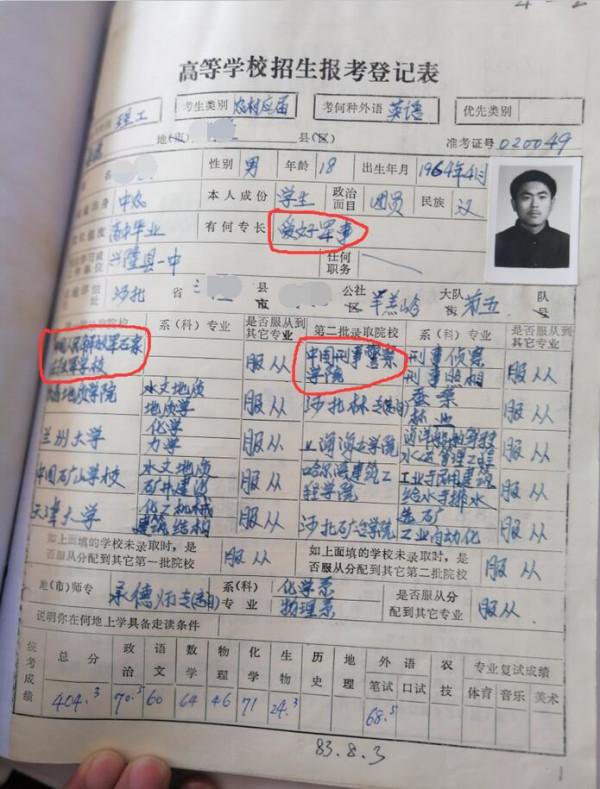 高等学校招生报考登记表
理工 考生类别 农村应届 考何种外语 英语 优先类别
地(市) 县(区) 准考证号 020049
性别 男 年龄 18 出生年月 1964年4月
出身 中农 本人成份 学生 政治面目 团员 民族 汉
高中毕业 有何专长 爱好军事
兴隆县一中 任何职务
河北 省 县市 公社 羊羔岭 大队 前五 队号
录取院校 系(科)专业 是否服从到其它专业 第二批录取院校 系(科)专业 是否服从到其它专业
中国人民解放军石家庄 学校 服从 中国刑事警察学院 刑事侦察 刑事照相 服从
地质学院 水文地质 地质学 服从 河北林 森 林业 服从
兰州大学 化学 力学 服从 上海海运学院 海洋船舶驾驶 水运管理工程 服从
中国矿业学校 水文地质 矿井建设 服从 哈尔滨建筑工程学院 工业与民用建筑 给水与排水 服从
天津大学 化工机械 建筑结构 服从 河北矿冶学院 选矿 工业自动化 服从
如上面填的学校未录取时,是否服从分配到其它第一批院校 服从 如上面填的学校未录取时,是否服从分配到其它第二批院校 服从
地(市)师专 承德师专 系(科)专业 化学系 物理系 是否服从分配到其它专业 服从
说明你在何地上学具备走读条件
统考成绩 总分 政治 语文 数学 物理 化学 生物 历史 地理 外语 笔试 口试 农技 专业复试成绩 体育 音乐 美术
404.3 70.5 60 64 46 71 24.3 68.5
83.8.3